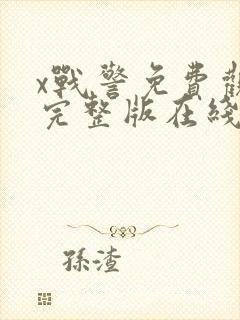 x戰警免費觀
完整版在綫
孫渣